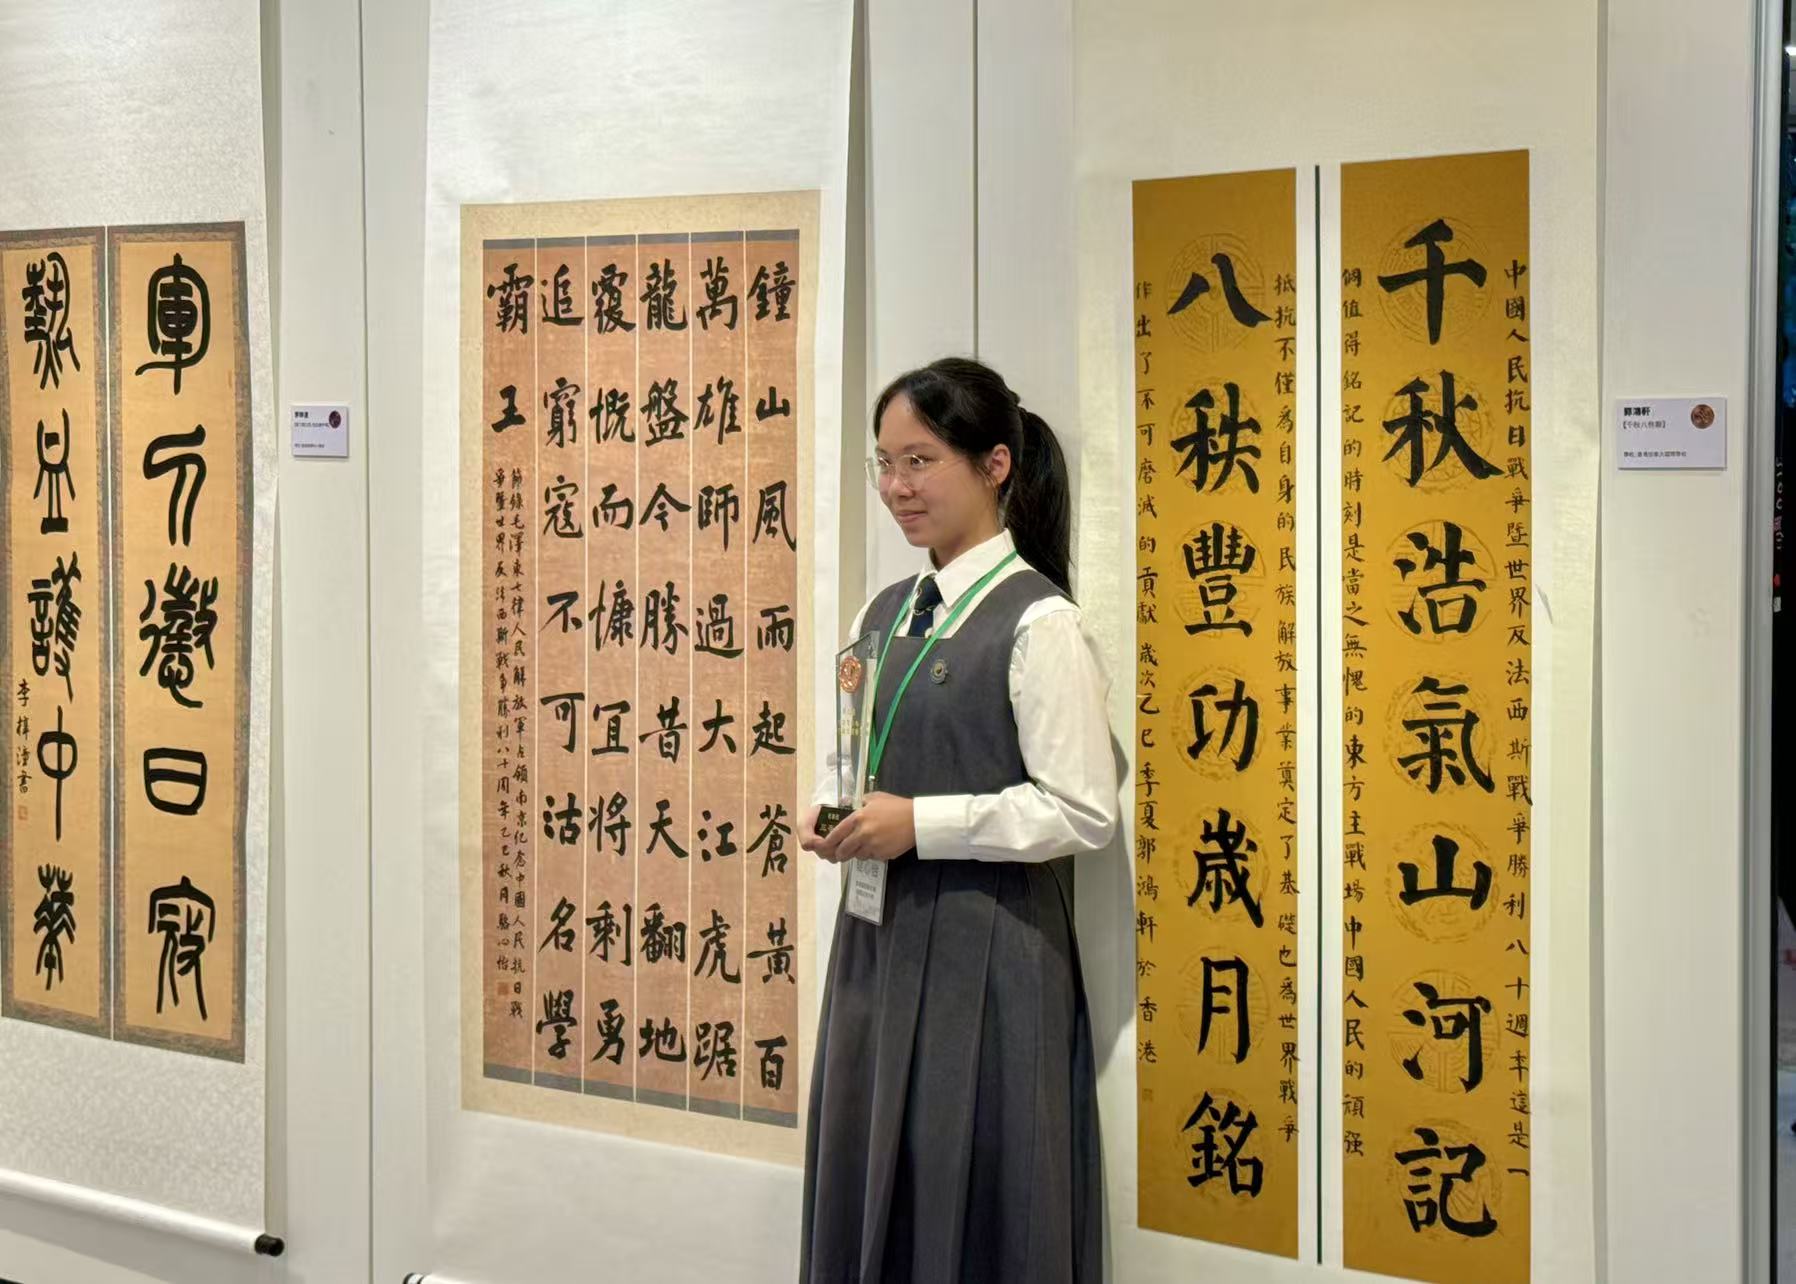 千秋浩氣山河記
中國人民抗日戰爭暨世界反法西斯戰爭勝利八十週年這是一
個值得銘記的時刻是當之無愧的東方主戰場中國人民的頑强
八秩豐功歲月銘
抵抗不僅為自身的民族解放事業奠定了基礎也為世界戰爭
作出了不可磨滅的貢獻歲次乙巳季夏郭鴻軒於香港
鐘山風雨起蒼黃百
萬雄師過大江虎踞
龍盤今勝昔天翻地
覆慨而慷宜將剩勇
追窮寇不可沽名學
霸王
節錄毛澤東七律人民解放軍占領南京紀念中國人民抗日戰
爭暨世界反法西斯戰爭勝利八十周年乙巳秋月駱心怡
軍刀懲日寇
熱血護中華
李梓潼書
郭鴻軒
【千秋八秩聯】